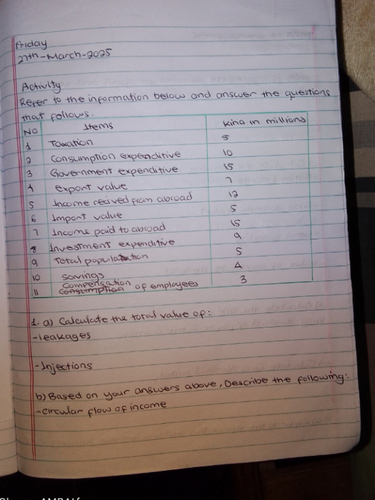 Friday
27th-March-2025
Activity
Refer to the information below and answer the questions
that follows.
NO Items Kina in millions
1 Taxation 8
2 Consumption expenditive 10
3 Government expenditive 15
4 Export value 7
5 Income recived from abroad 12
6 Import value 5
7 Income paid to abroad 15
8 Investment expenditive 9
9 Total population 5
10 Savings 4
11 Compensation of employees 3
1. a) Calculate the total value of:
-leakages
-Injections
b) Based on your answers above, Describe the following:
-circular flow of income